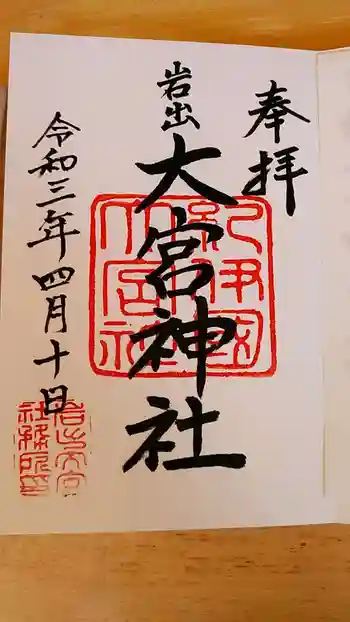 奉拝
岩出
大宮神社
令和三年四月十日
紀伊國
大宮社
岩出大宮
社務所印